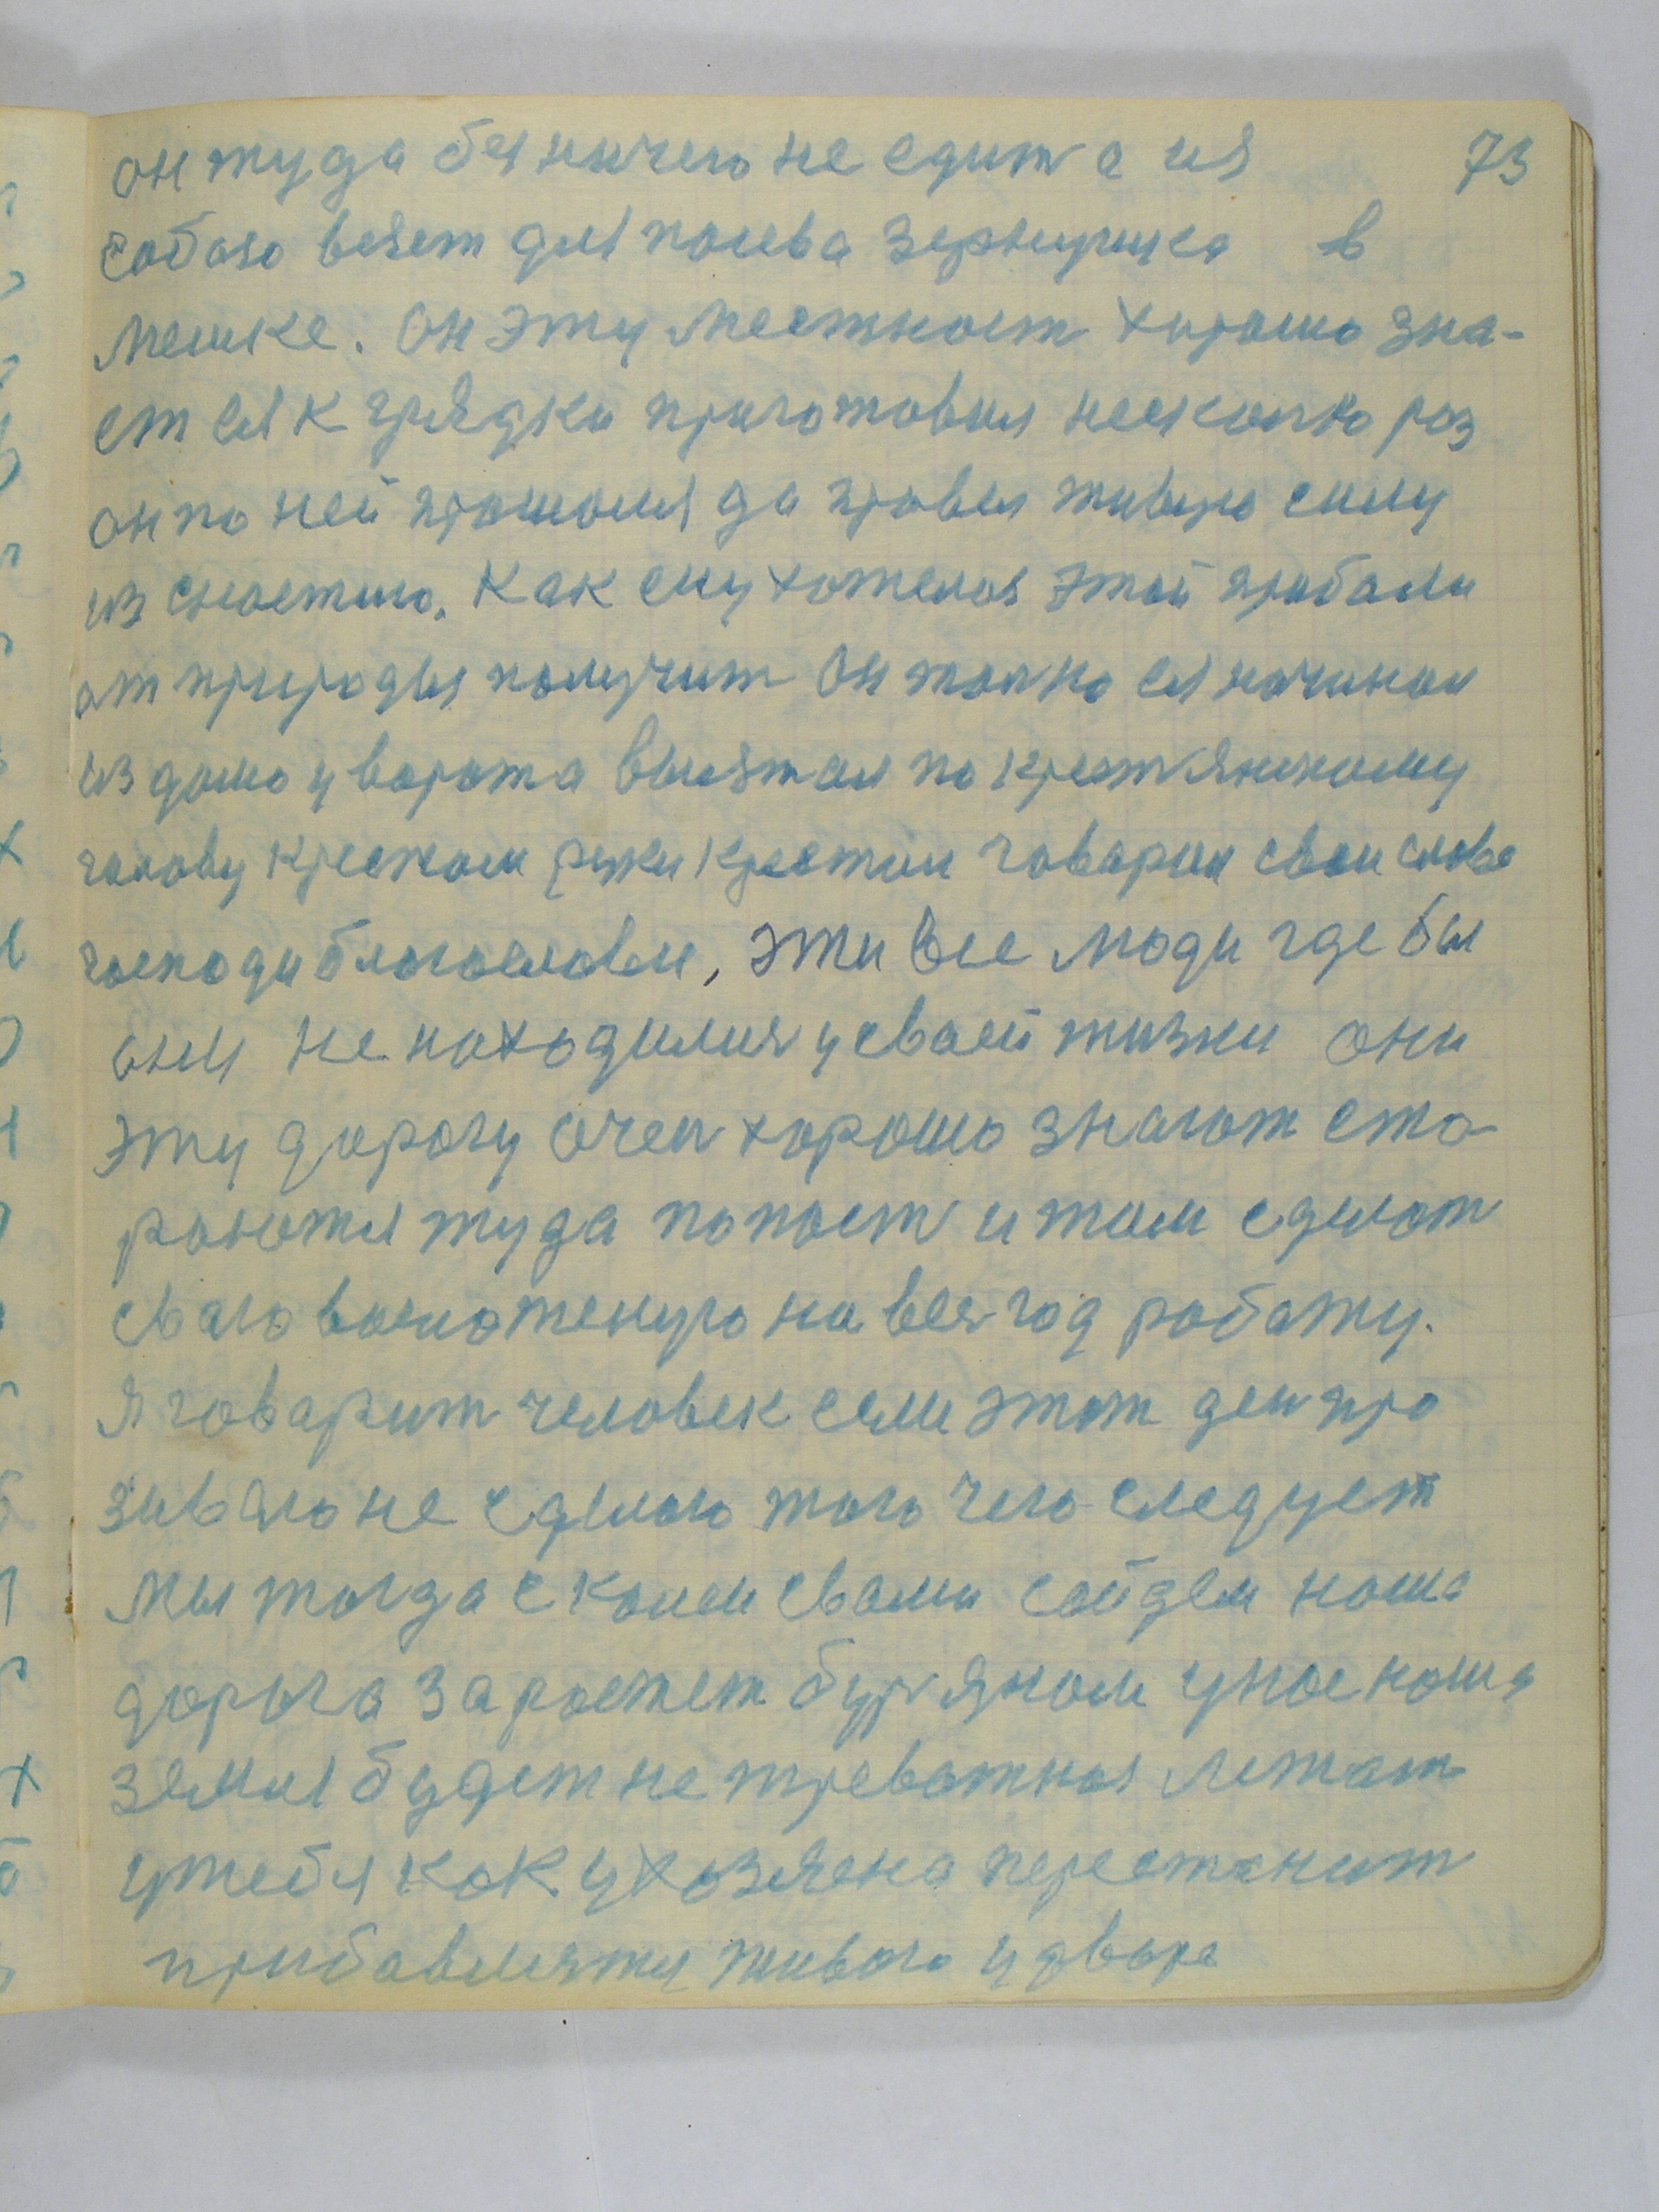 он туда бя ничего не едит а ия 73
собаю везет для посева зернушка в
мешке. Он эту местност хорошо зна-
ет ея к грядки приготовил несколко раз
он по ней прошолся да провел живую силу
из снастию. Как ему хотелоя этой прибали
от природыя получит Он толко ея начинал
из дому ворота выезжал по крестянскому
голову крестом руки крестил говарил свои слова
господи благослови, эти все люди где бы
они не находилия у своей жизни они
эту дорогу очен хорошо знают ста-
раютя туда попаст и там сделат
сваю возложеную на вея год работу.
Я говарит человек если этот ден про
зиваю не сделаю того чего следует
мы тогда с коли свами сойдем наша
дорога заростет буряном у нас наша
земля будет не тревожная лежат
у тебя как у хозяена перестанит
прибавлятя живого у дваре